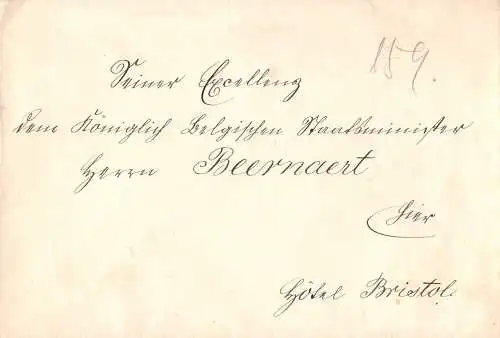 159.
Seiner Excellenz
dem Königlich Belgischen Staatsminister
Herrn Beernaert
hier
Hôtel Bristol.